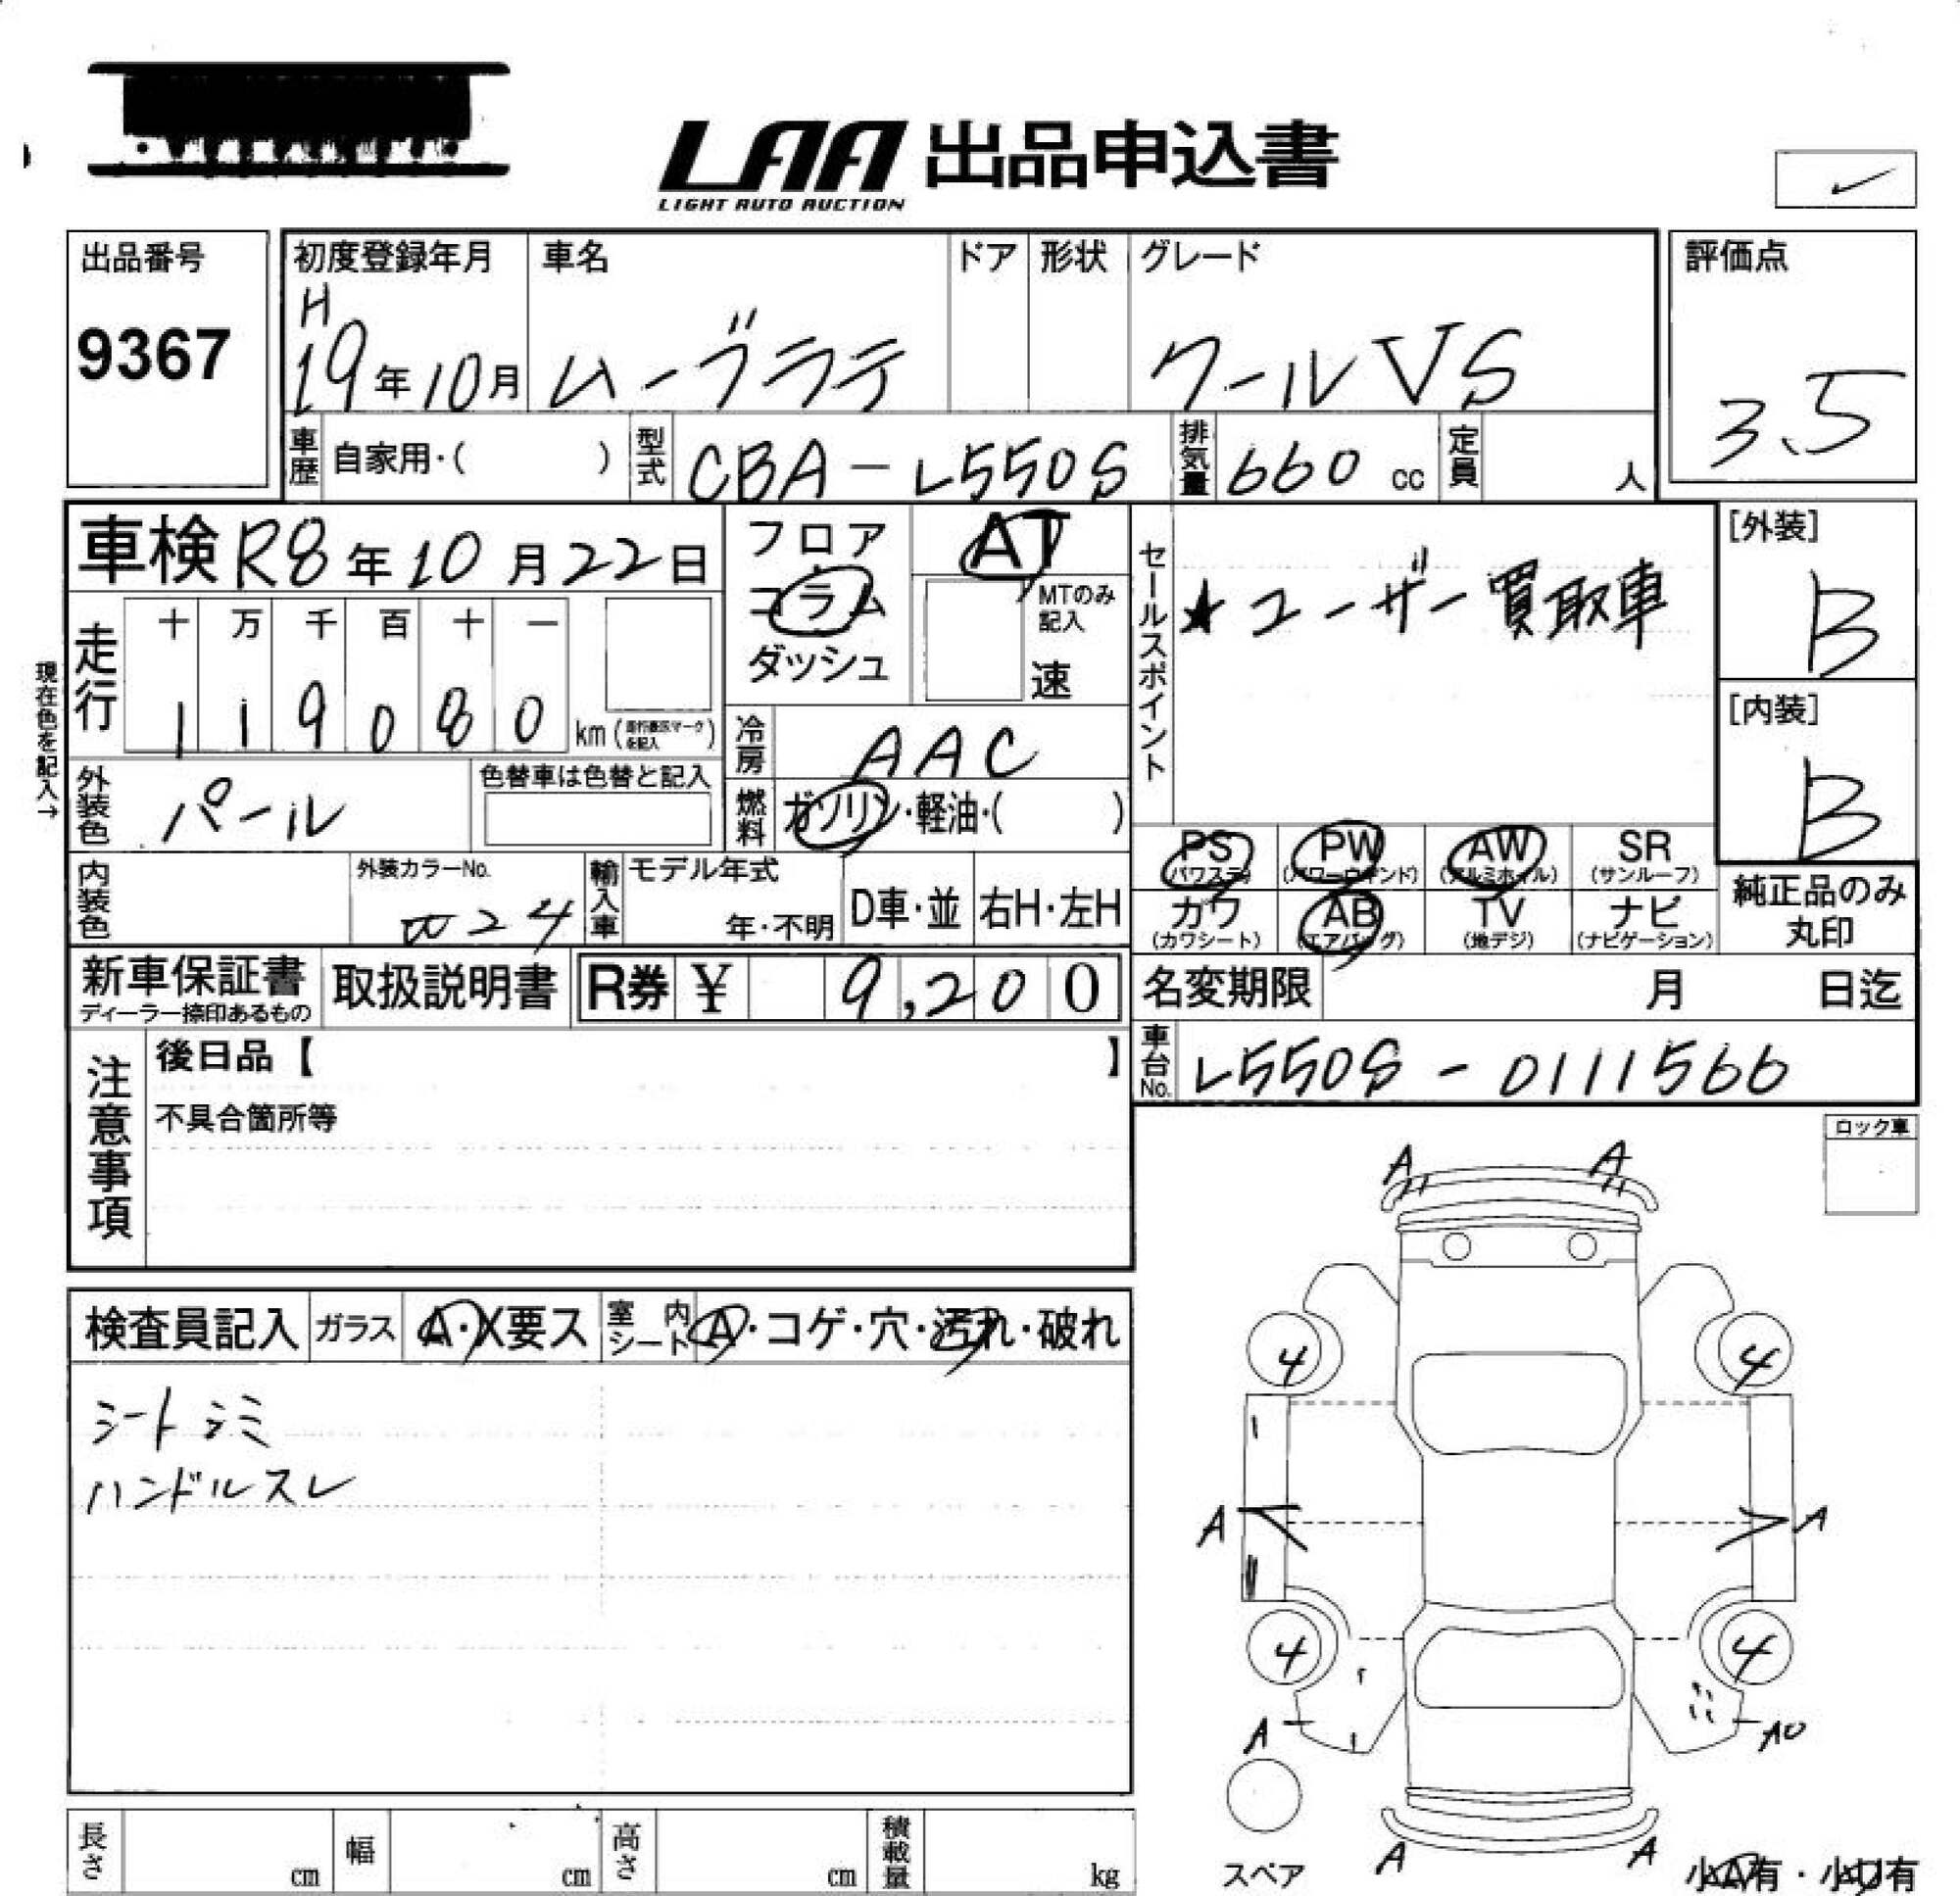 LAA 出品申込書
LIGHT AUTO AUCTION
出品番号
9367
初度登録年月
H
19年10月
車名
ムーブラテ
ドア
形状
グレード
クールVS
評価点
3.5
車歴 自家用・( )
型式 CBA-L550S
排気量 660 cc
定員 人
車検 R8年10月22日
フロア
コラム
ダッシュ
AT
MTのみ
記入
速
セールスポイント
★ユーザー買取車
[外装]
B
[内装]
B
現在色を記入→
走行
十 万 千 百 十 一
1 1 9 0 8 0 km
冷房 AAC
外装色 パール
色替車は色替と記入
燃料 ガソリン・軽油・( )
PS
(パワステ)
PW
(パワーウインド)
AW
(アルミホイル)
SR
(サンルーフ)
カワ
(カワシート)
AB
(エアバッグ)
TV
(地デジ)
ナビ
(ナビゲーション)
純正品のみ
丸印
内装色
外装カラーNo.
W24
輸入車
モデル年式
年・不明
D車・並
右H・左H
新車保証書
ディーラー捺印あるもの
取扱説明書
R券 ¥ 9,200
名変期限 月 日迄
車台No. L550S-0111566
注意事項
後日品【 】
不具合箇所等
ロック車
検査員記入
ガラス A・X要ス
室内シート A・コゲ・穴・汚れ・破れ
シートシミ
ハンドルスレ
A A
4 4
A A
4 4
A A0
A A
スペア
小A有・小U有
長さ cm
幅 cm
高さ cm
積載量 kg